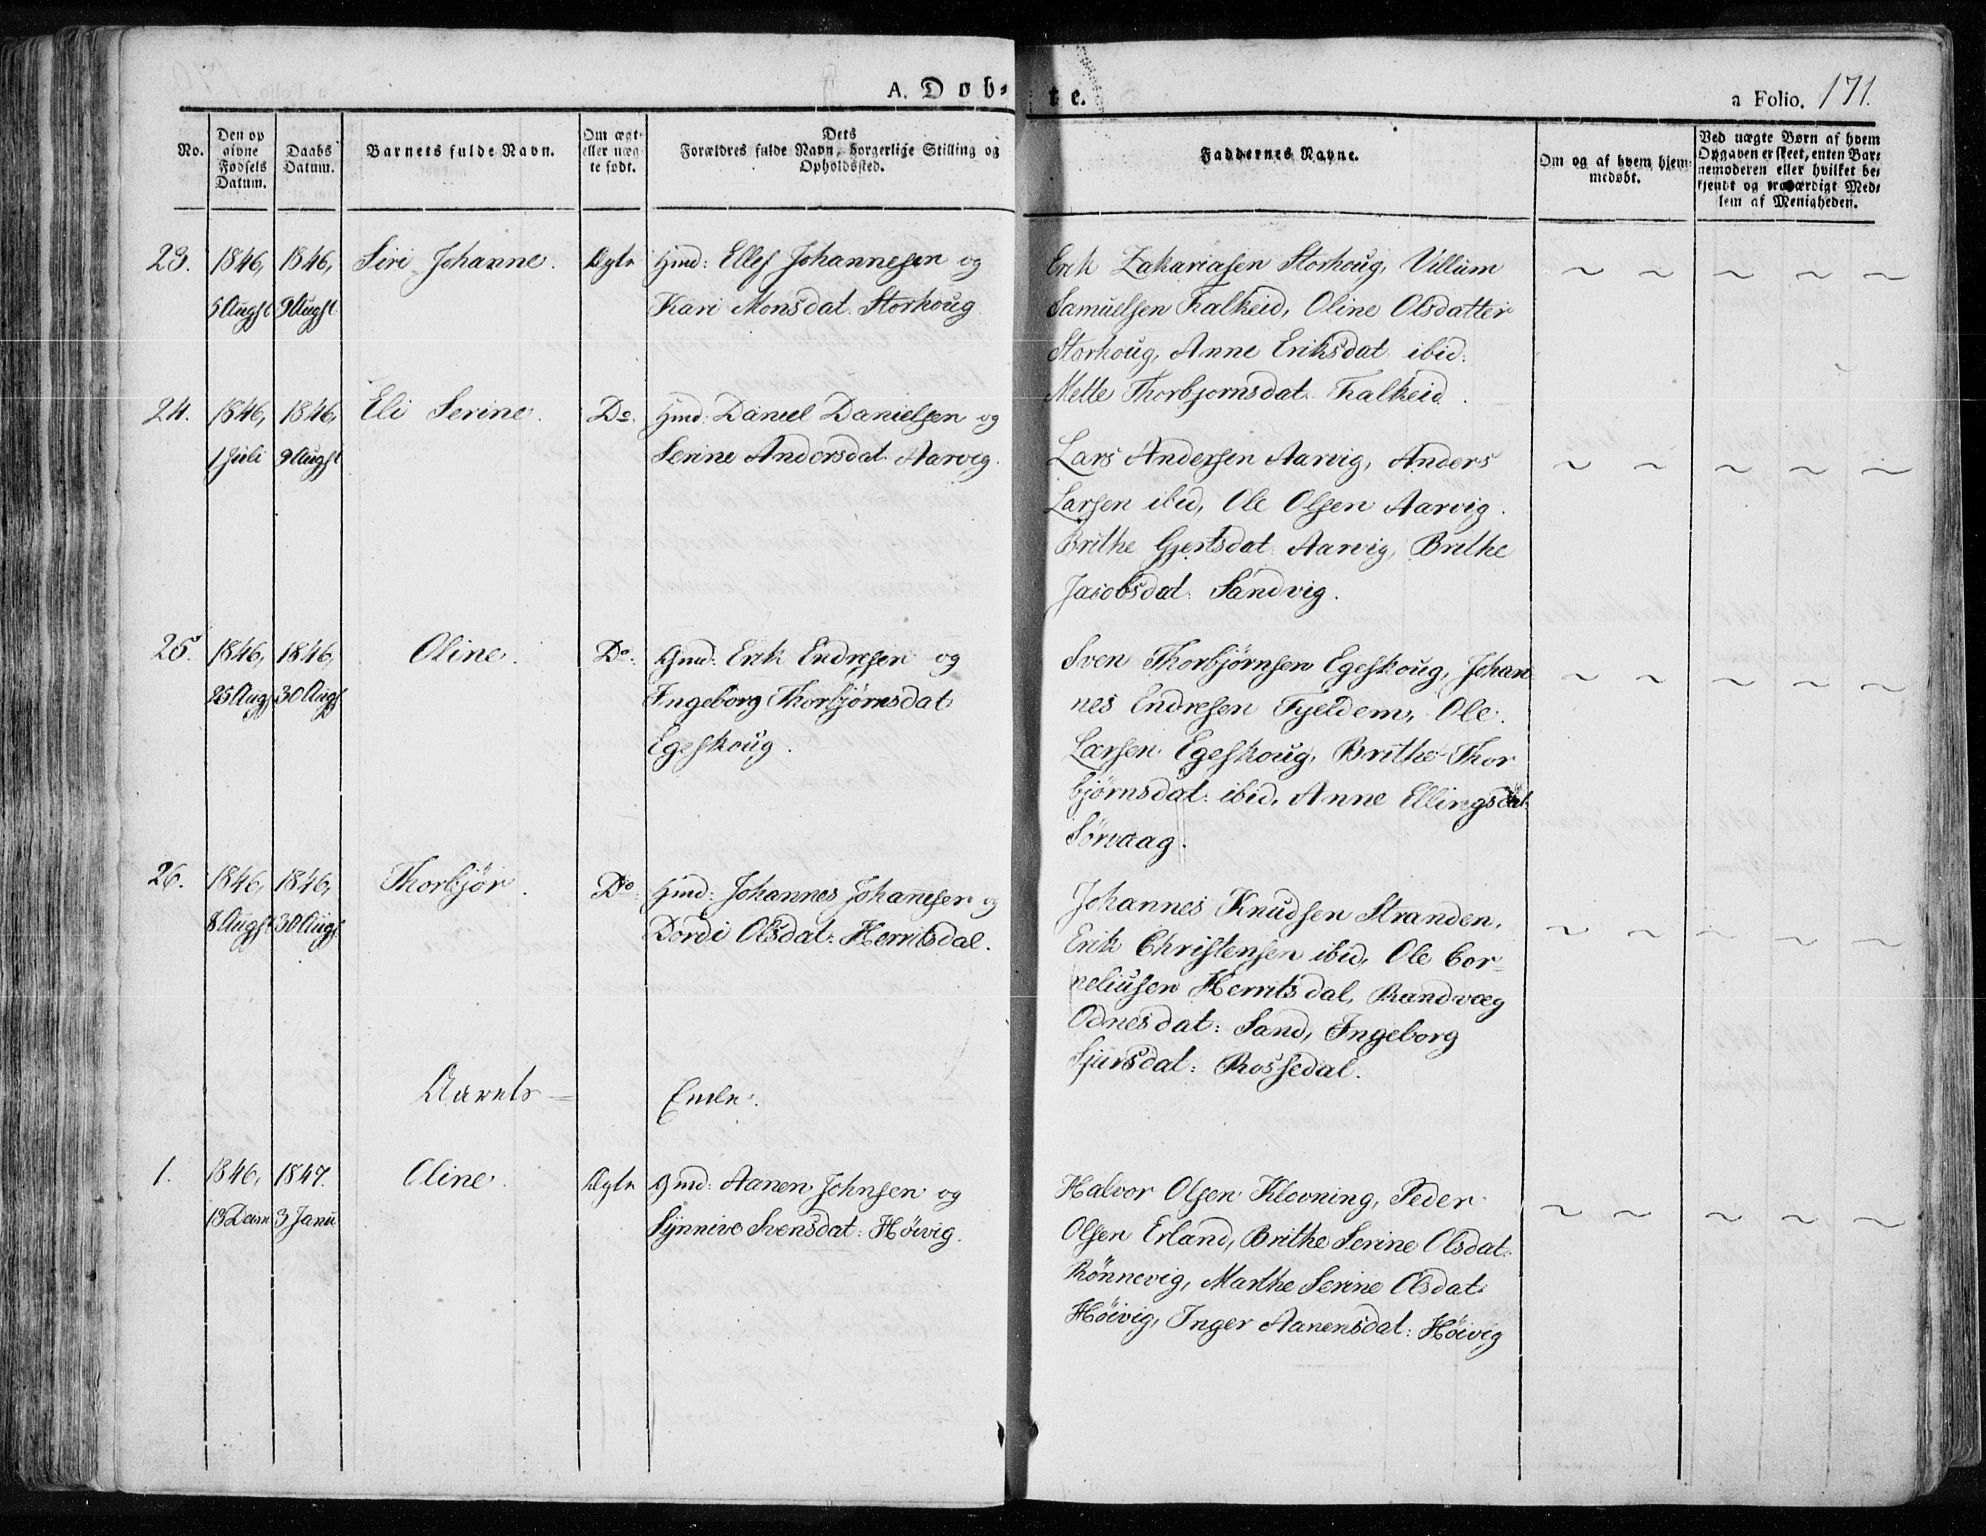 A. Døb-
te.
a Folio. 171.
No.
Den op
givne
Fødsels
Datum.
Daabs
Datum.
Barnets fulde Navn.
Om ægte
eller uæg-
te født.
Dets
Forældres fulde Navn, borgerlige Stilling og
Opholdssted.
Faddernes Navne.
Om og af hvem hjem-
medøbt.
Ved uægte Børn af hvem
Opgaven er skeet, enten Bar-
nemoderen eller hvilket be-
kjendt og troværdigt Med-
lem af Menigheden.
23. 1846, 1846, Siri Johanne. Ægte Gmd: Ellef Johannesen og
5 Augst 9 Augst Kari Monsdat. Storhoug
Erik Zakariasen Storhoug, Villum
Samuelsen Falkeid, Oline Olsdatter
Storhoug, Anne Eriksdat. ibid.
Mette Thorbjornsdat. Falkeid.
24. 1846, 1846, Eli Serine. Do. Gmd: Daniel Danielsen og
1 Juli 9 Augst Serine Andersdat. Aarvig.
Lars Andersen Aarvig, Anders
Larsen ibid, Ole Olsen Aarvig.
Brithe Gjertsdat. Aarvig, Brithe
Jacobsdat: Sandvig.
25. 1846, 1846, Oline. Do. Gmd: Erik Endresen og
25 Augst 30 Augst Ingeborg Thorbjørnsdat.
Egeskoug.
Sven Thorbjørnsen Egeskoug, Johan
nes Endresen Fjeldem, Ole.
Larsen Egeskoug, Brithe Thor
bjørnsdat: ibid, Anne Ellingsdat.
Sørvaag.
26. 1846, 1846, Thorbjør. Do. Gmd: Johannes Johannesen og
8 Augst 30 Augst Dordi Olsdat: Herritsdal.
Johannes Knudsen Stranden,
Erik Christensen ibid, Ole Cor-
neliusen Herritsdal, Randvæg
Odnesdat: Sand, Ingeborg
Sjursdat: Rossedal.
Aarets Ende.
1. 1846, 1847. Oline. Ægte Gmd: Aanen Johnsen og
13 Decm 3 Janu Synnive Svensdat: Høivig.
Halvor Olsen Klovning, Peder
Olsen Erland, Brithe Serine Olsdat:
Rønnevig, Marthe Serine Olsdat:
Høivig, Inger Aanensdat: Høivig